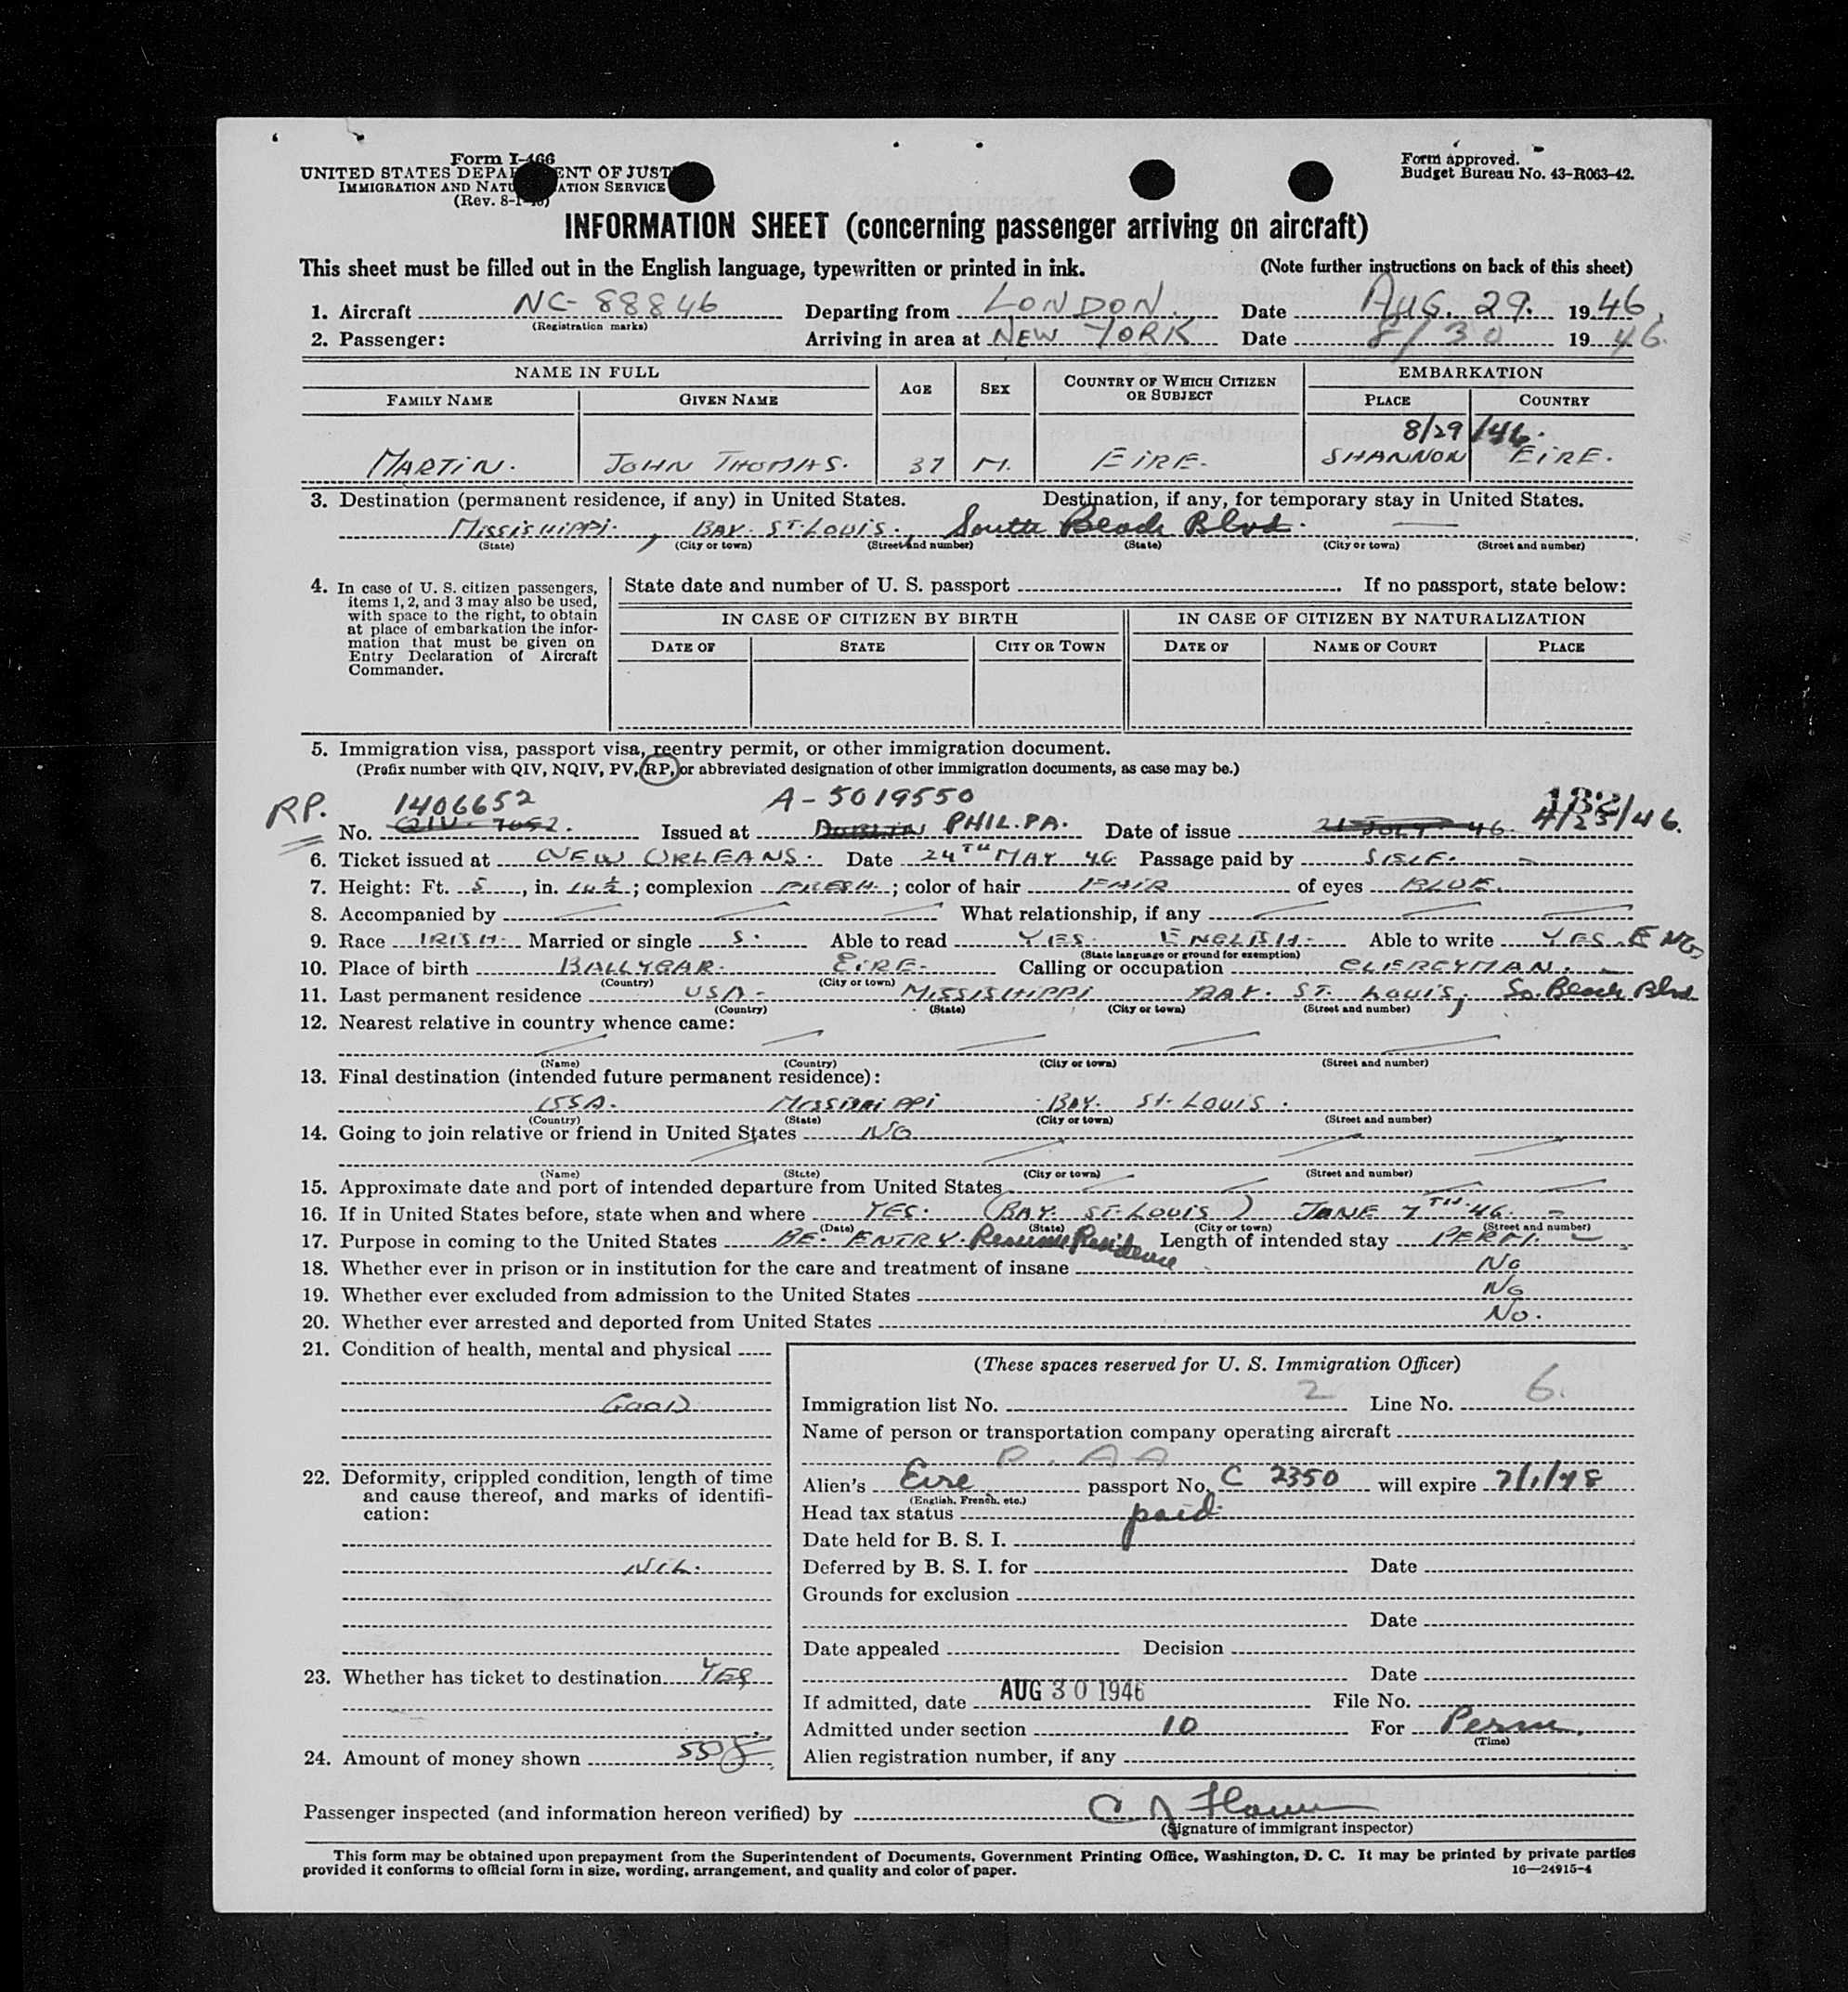 Form I-466
UNITED STATES DEPARTMENT OF JUSTICE
IMMIGRATION AND NATURALIZATION SERVICE
(Rev. 8-1-45)
Form approved.
Budget Bureau No. 43-R063-42.
INFORMATION SHEET (concerning passenger arriving on aircraft)
This sheet must be filled out in the English language, typewritten or printed in ink. (Note further instructions on back of this sheet)
1. Aircraft NC-88846 Departing from LONDON. Date AUG. 29. 1946.
(Registration marks)
2. Passenger: Arriving in area at NEW YORK Date 8/30 1946.
NAME IN FULL AGE SEX COUNTRY OF WHICH CITIZEN OR SUBJECT EMBARKATION
FAMILY NAME GIVEN NAME PLACE COUNTRY
8/29/46.
MARTIN. JOHN THOMAS. 37 M. EIRE. SHANNON EIRE.
3. Destination (permanent residence, if any) in United States. Destination, if any, for temporary stay in United States.
MISSISHIPPI. , BAY. ST. LOUIS. , South Beach Blvd. —
(State) (City or town) (Street and number) (State) (City or town) (Street and number)
4. In case of U. S. citizen passengers,
items 1, 2, and 3 may also be used,
with space to the right, to obtain
at place of embarkation the infor-
mation that must be given on
Entry Declaration of Aircraft
Commander.
State date and number of U. S. passport . If no passport, state below:
IN CASE OF CITIZEN BY BIRTH IN CASE OF CITIZEN BY NATURALIZATION
DATE OF STATE CITY OR TOWN DATE OF NAME OF COURT PLACE
5. Immigration visa, passport visa, reentry permit, or other immigration document.
(Prefix number with QIV, NQIV, PV, RP, or abbreviated designation of other immigration documents, as case may be.)
RP. 1406652 A-5019550
No. QIV. 7052. Issued at DUBLIN PHIL. PA. Date of issue 21 JULY 46. 4/25/46.
6. Ticket issued at NEW ORLEANS. Date 24TH MAY 46 Passage paid by SELF.
7. Height: Ft. 5, in. 10½; complexion FRESH.; color of hair FAIR of eyes BLUE.
8. Accompanied by What relationship, if any
9. Race IRISH. Married or single S. Able to read YES. ENGLISH. Able to write YES. ENG
(State language or ground for exemption)
10. Place of birth BALLYGAR. EIRE. Calling or occupation CLERGYMAN.
(Country) (City or town)
11. Last permanent residence USA. MISSISIHIPPI BAY. ST. LOUIS, So. Beach Blvd
(Country) (State) (City or town) (Street and number)
12. Nearest relative in country whence came:
(Name) (Country) (City or town) (Street and number)
13. Final destination (intended future permanent residence):
USA. MISSISHIPPI BAY. ST. LOUIS.
(Country) (State) (City or town) (Street and number)
14. Going to join relative or friend in United States NO
(Name) (State) (City or town) (Street and number)
15. Approximate date and port of intended departure from United States
16. If in United States before, state when and where YES. (BAY. ST. LOUIS) JUNE 7TH. 46.
(Date) (State) (City or town) (Street and number)
17. Purpose in coming to the United States RE. ENTRY. Resume Residence Length of intended stay PERM.
18. Whether ever in prison or in institution for the care and treatment of insane No
19. Whether ever excluded from admission to the United States No
20. Whether ever arrested and deported from United States No.
21. Condition of health, mental and physical
GOOD
22. Deformity, crippled condition, length of time
and cause thereof, and marks of identifi-
cation:
NIL.
23. Whether has ticket to destination YES
24. Amount of money shown
(These spaces reserved for U. S. Immigration Officer)
Immigration list No. 2 Line No. 6.
Name of person or transportation company operating aircraft
P. AA
Alien's Eire passport No. C 2350 will expire 7/1/48
(English, French, etc.)
Head tax status paid
Date held for B. S. I.
Deferred by B. S. I. for Date
Grounds for exclusion
Date
Date appealed Decision
Date
If admitted, date AUG 30 1946 File No.
Admitted under section 10 For Perm.
(Time)
Alien registration number, if any
Passenger inspected (and information hereon verified) by
(Signature of immigrant inspector)
This form may be obtained upon prepayment from the Superintendent of Documents, Government Printing Office, Washington, D. C. It may be printed by private parties
provided it conforms to official form in size, wording, arrangement, and quality and color of paper. 16—24915-4